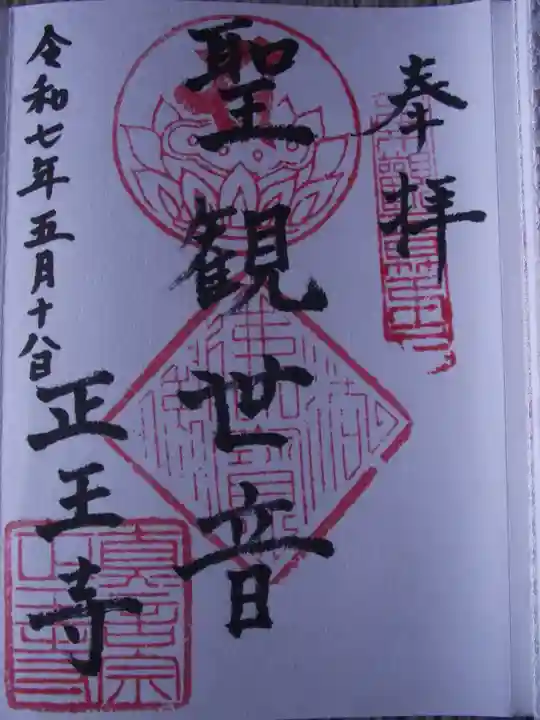 奉拝
聖観世音
令和七年五月十八日
正王寺